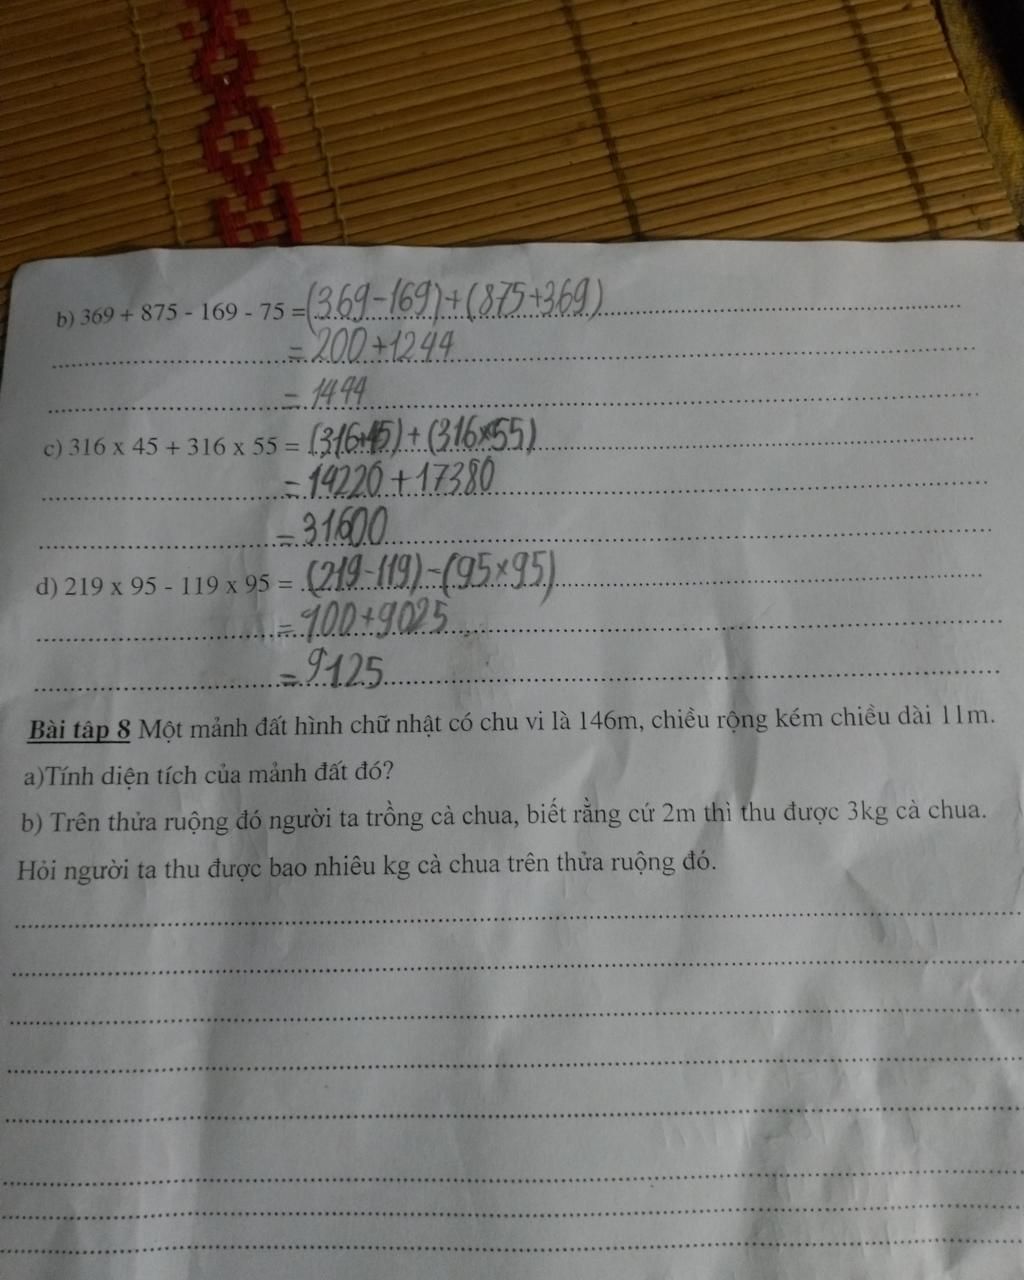 b) 369 + 875 - 169 - 75 = (369-169)+(875+369)
= 200+1244
= 1444
c) 316 x 45 + 316 x 55 = (316×45)+(316×55)
= 14220+17380
= 31600
d) 219 x 95 - 119 x 95 = (219-119)-(95×95)
= 100+9025
= 9125
Bài tâp 8 Một mảnh đất hình chữ nhật có chu vi là 146m, chiều rộng kém chiều dài 11m.
a)Tính diện tích của mảnh đất đó?
b) Trên thửa ruộng đó người ta trồng cà chua, biết rằng cứ 2m thì thu được 3kg cà chua.
Hỏi người ta thu được bao nhiêu kg cà chua trên thửa ruộng đó.